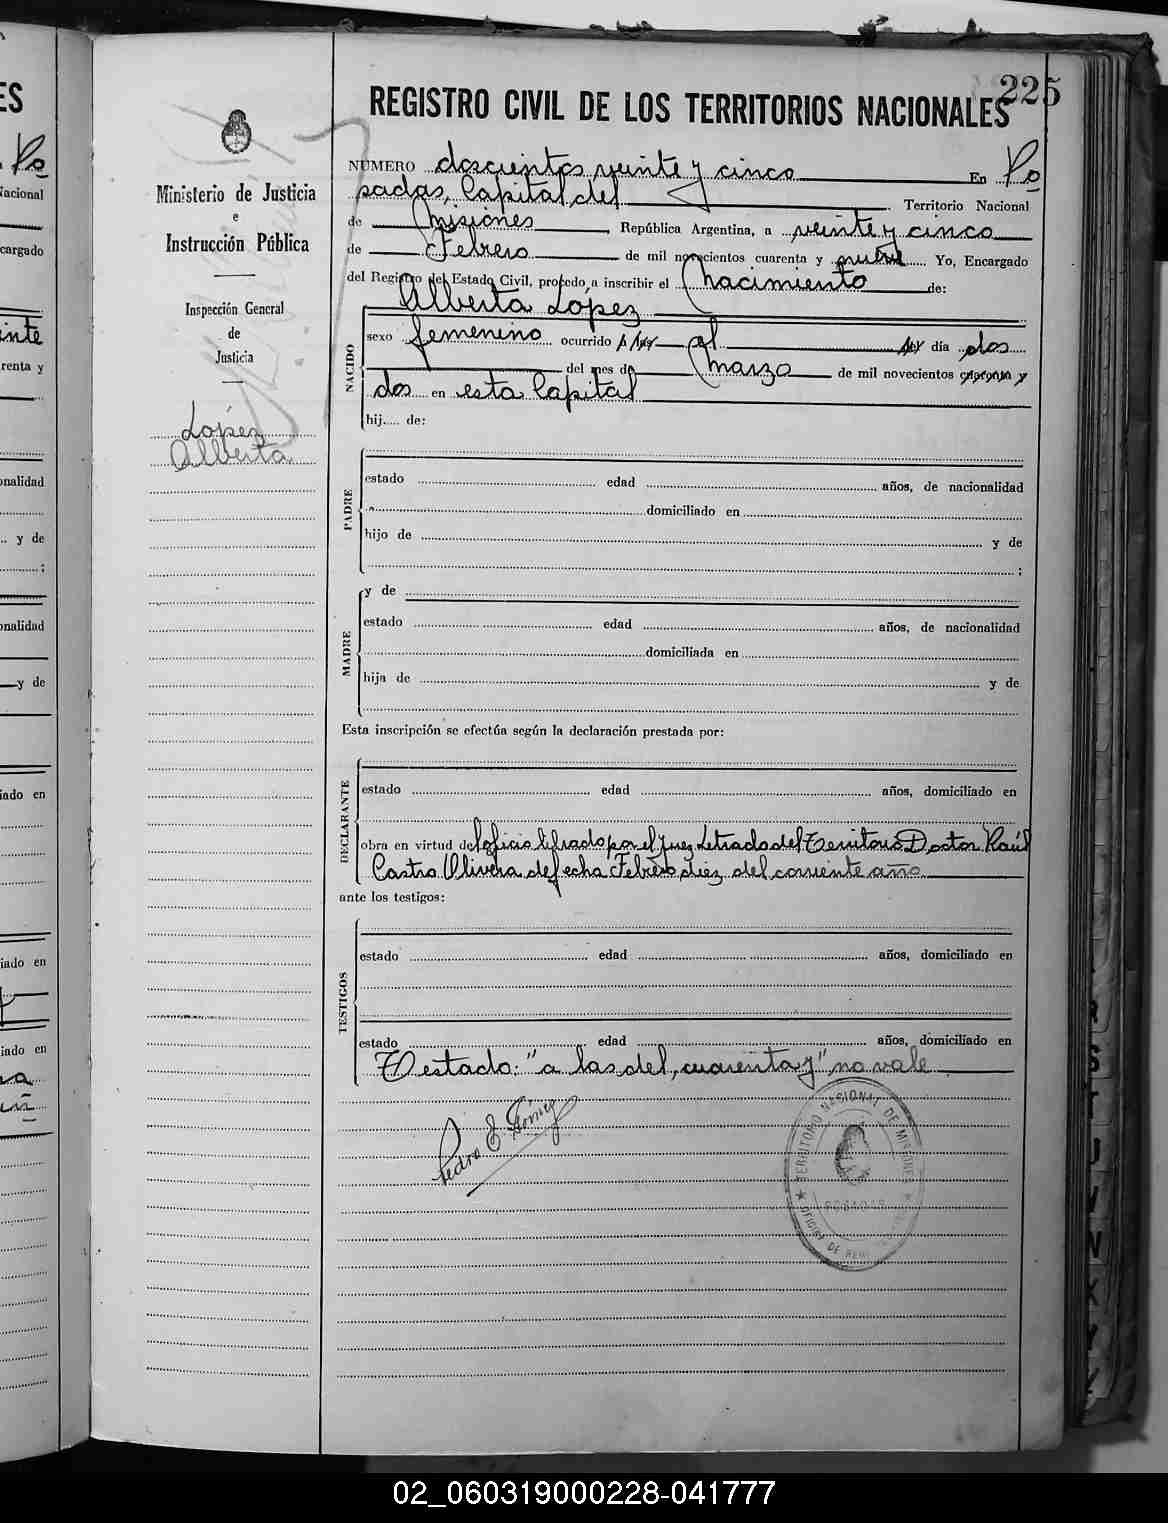 225
REGISTRO CIVIL DE LOS TERRITORIOS NACIONALES
Ministerio de Justicia
e
Instrucción Pública
Inspección General
de
Justicia
López
Alberta
NUMERO doscientos veinte y cinco En Po
sadas, Capital del Territorio Nacional
de Misiones, República Argentina, a veinte y cinco
de Febrero de mil novecientos cuarenta y nueve Yo, Encargado
del Registro del Estado Civil, procedo a inscribir el Nacimiento de:
Alberta López
NACIDO
sexo femenino ocurrido a las el del día dos
del mes de Marzo de mil novecientos cuarenta y
dos en esta Capital
hij.... de:
PADRE
estado edad años, de nacionalidad
domiciliado en
hijo de y de
;
MADRE
y de
estado edad años, de nacionalidad
domiciliada en
hija de y de
Esta inscripción se efectúa según la declaración prestada por:
DECLARANTE
estado edad años, domiciliado en
obra en virtud del oficio librado por el Juez Letrado del Territorio Doctor Raúl
Castro Olivera de fecha Febrero diez del corriente año
ante los testigos:
TESTIGOS
estado edad años, domiciliado en
estado edad años, domiciliado en
Testado: "a las del, cuarenta y" no vale
Pedro E Gómez
TERRITORIO NACIONAL DE MISIONES
POSADAS
OFICINA DE
ES
Po
Nacional
cargado
inte
renta y
onalidad
y de
;
onalidad
y de
iado en
iado en
iado en
R
S
T
U
V
N
X
Y
Z
02_060319000228-041777